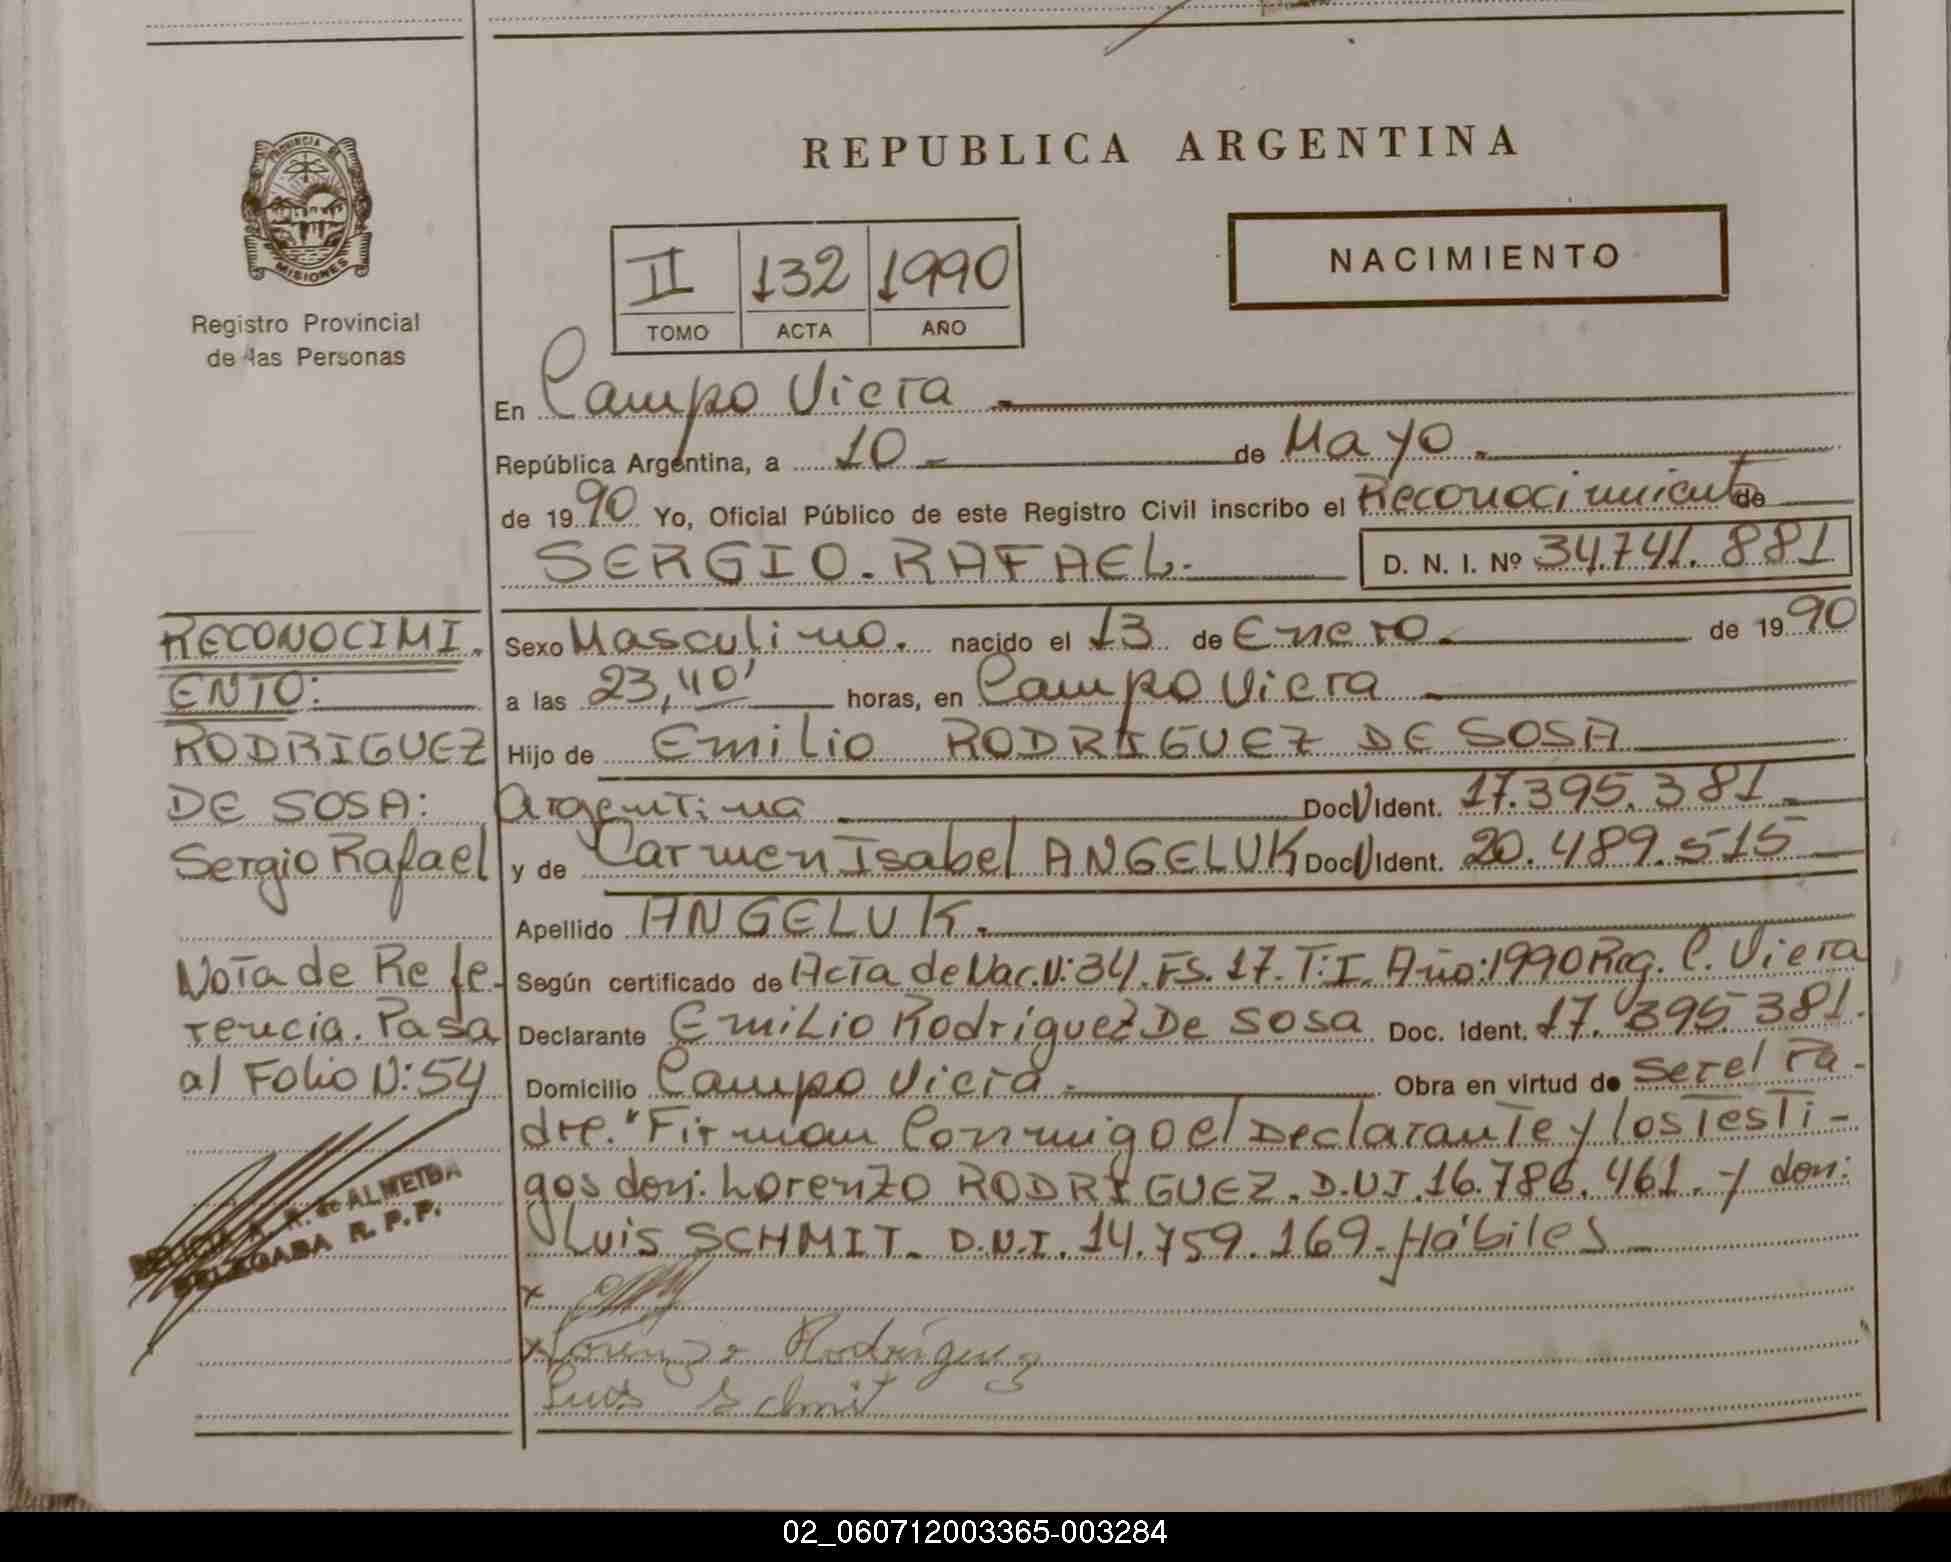 PROVINCIA DE
MISIONES
Registro Provincial
de las Personas
REPUBLICA ARGENTINA
NACIMIENTO
II 132 1990
TOMO ACTA AÑO
En Campo Viera
República Argentina, a 10 de Mayo
de 1990 Yo, Oficial Público de este Registro Civil inscribo el Reconocimiento de
SERGIO. RAFAEL. D. N. I. Nº 34.741.881
Sexo Masculino. nacido el 13 de Enero. de 1990
a las 23,40' horas, en Campo Viera
Hijo de Emilio RODRIGUEZ DE SOSA
Argentina Doc Ident. 17.395.381
y de Carmen Isabel ANGELUK Doc Ident. 20.489.515
Apellido ANGELUK.
Según certificado de Acta de Nac. N: 34. Fs. 17. T: I. Año: 1990 Reg. C. Viera
Declarante Emilio Rodríguez De Sosa Doc. Ident. 17.395.381.
Domicilio Campo Viera. Obra en virtud de ser el Pa-
dre." Firman Conmigo el Declarante y los Testi-
gos don: Lorenzo RODRIGUEZ. D.N.I. 16.786.461. y don:
Luis SCHMIT. D.N.I. 14.759.169. Hábiles
Lorenzo Rodríguez
Luis Schmit
RECONOCIMI.
ENTO:
RODRIGUEZ
DE SOSA:
Sergio Rafael
Nota de Refe-
rencia. Pasa
al Folio N: 54
DELICIA A. R. de ALMEIDA
DELEGADA R. P. P.
02_060712003365-003284